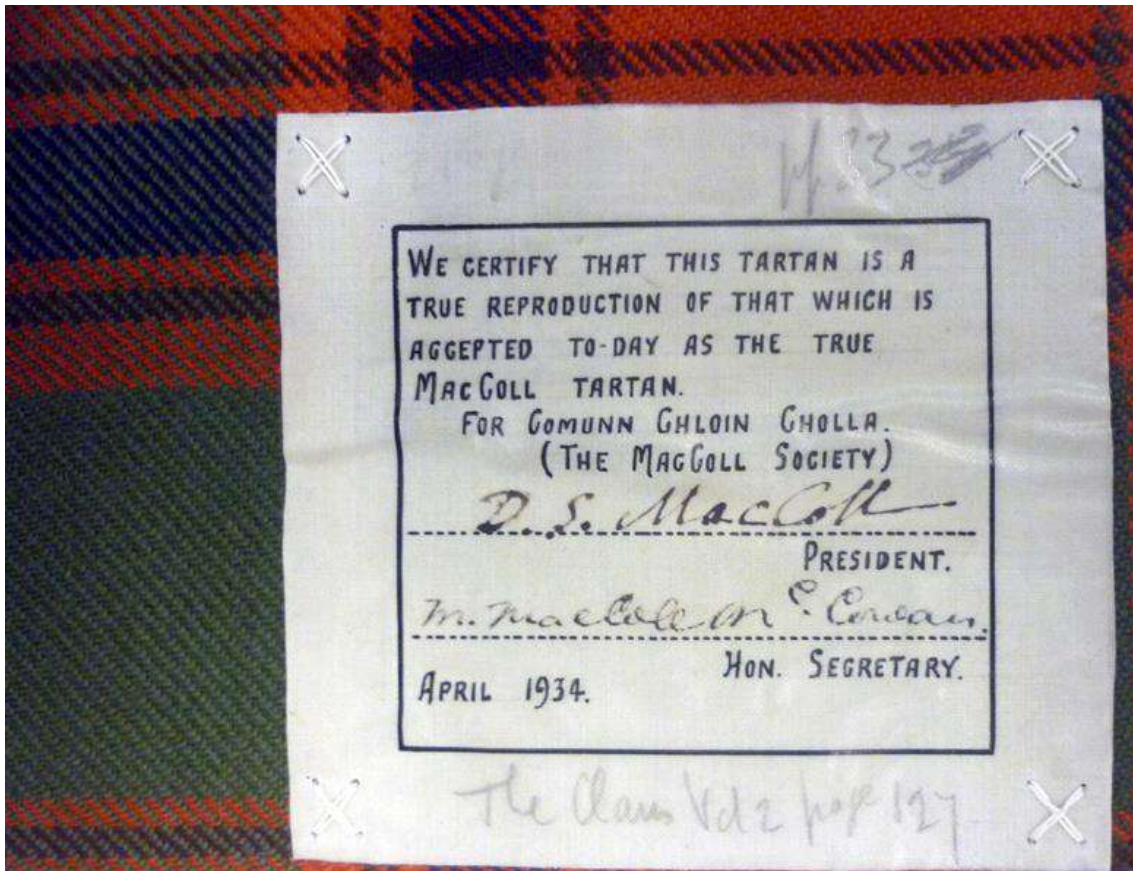 WE CERTIFY THAT THIS TARTAN IS A
TRUE REPRODUCTION OF THAT WHICH IS
ACCEPTED TO-DAY AS THE TRUE
MACCOLL TARTAN.
FOR COMUNN CHLOIN CHOLLA.
(THE MACCOLL SOCIETY)
D. S. MacColl
PRESIDENT.
M. MacColl Mc. Cowan.
HON. SECRETARY.
APRIL 1934.
The Clans Vol 2 page 127